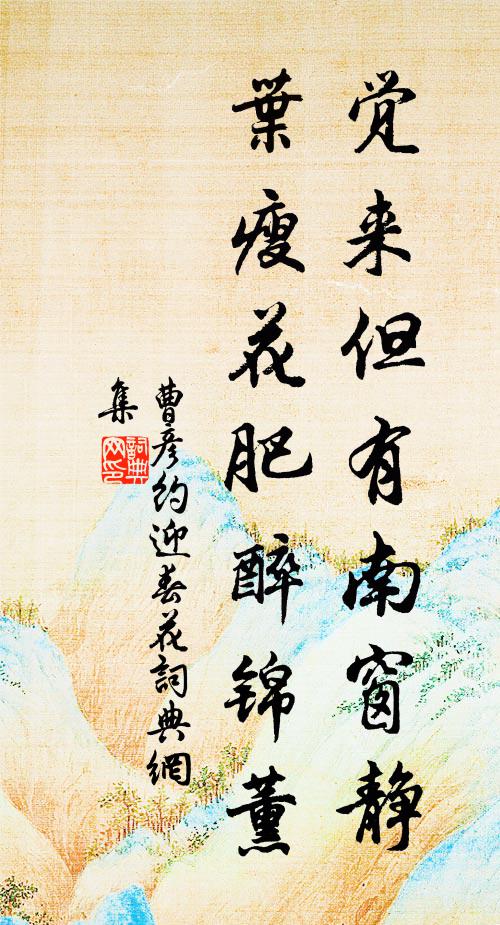 觉来但有南窗静
葉瘦花肥醉锦薰
曹彦约迎春花詞典網
集
詞典网印